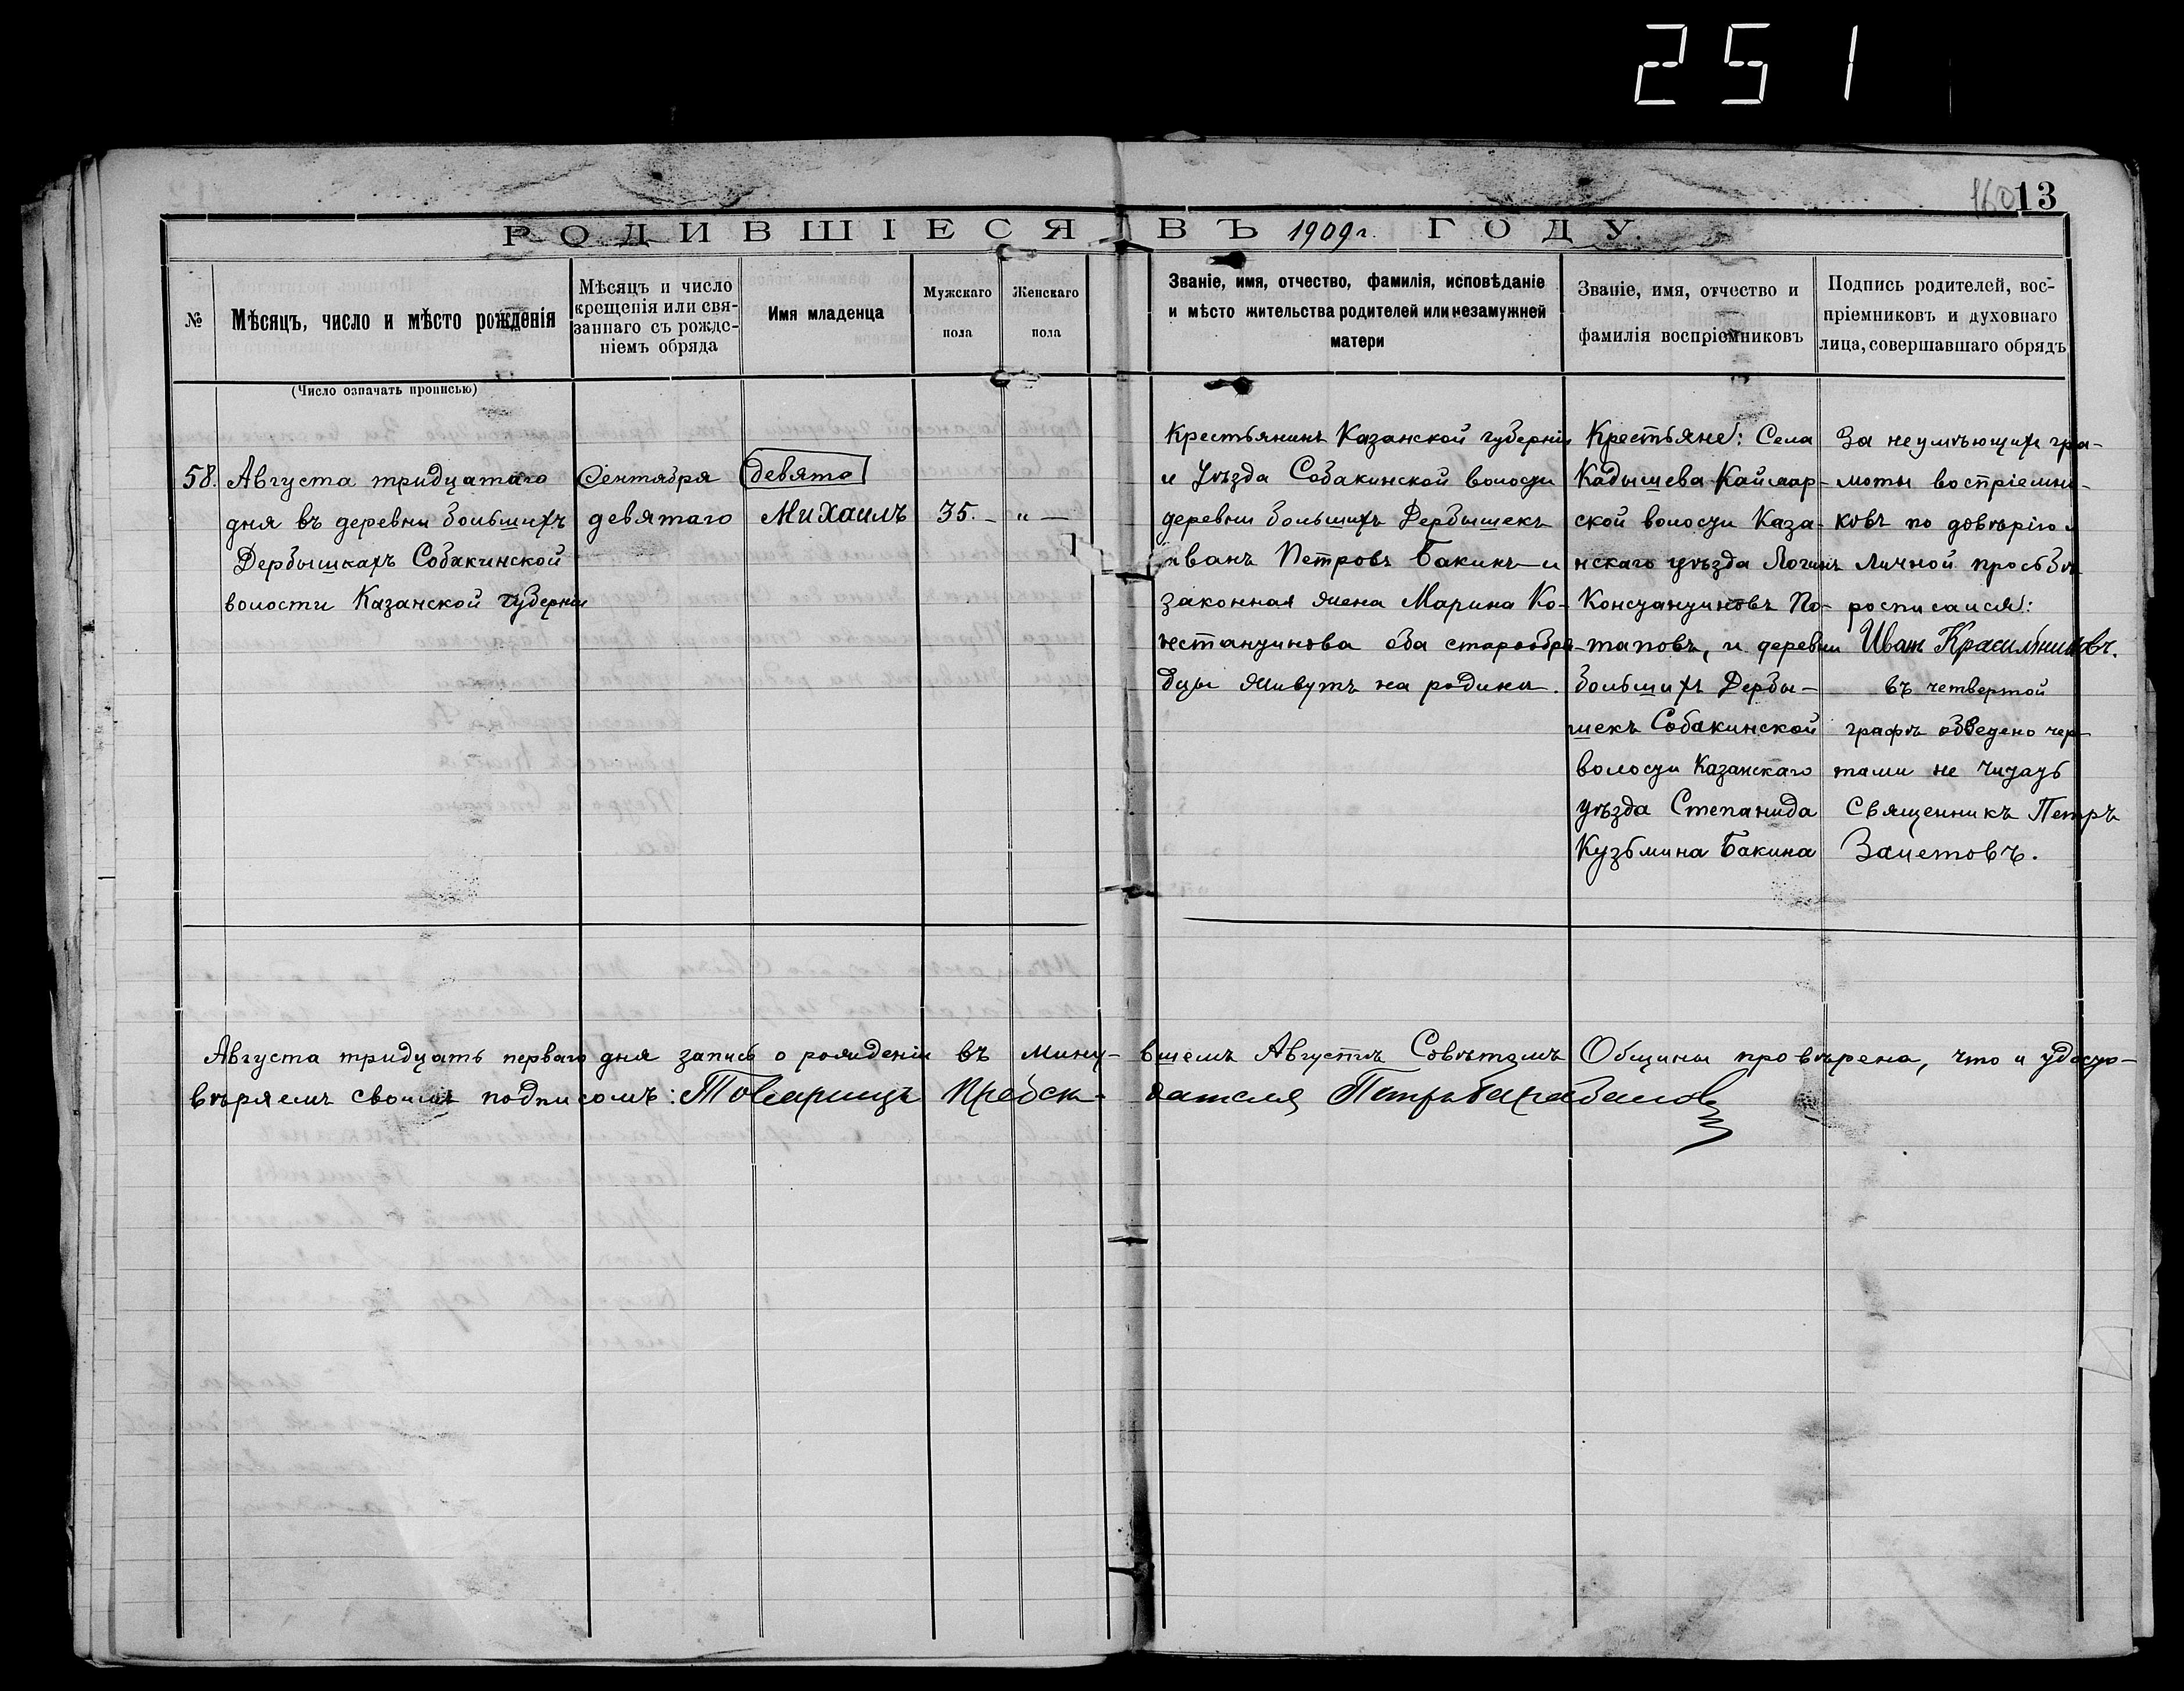 251
160 13
РОДИВШІЕСЯ ВЪ 1909 г. ГОДУ.
№
Мѣсяцъ, число и мѣсто рожденія
Мѣсяцъ и число
крещенія или свя-
заннаго съ рожде-
ніемъ обряда
Имя младенца
Мужскаго
пола
Женскаго
пола
Званіе, имя, отчество, фамилія, исповѣданіе
и мѣсто жительства родителей или незамужней
матери
Званіе, имя, отчество и
фамилія воспріемниковъ
Подпись родителей, вос-
пріемниковъ и духовнаго
лица, совершавшаго обрядъ
(Число означать прописью)
58.
Августа тридцатаго
дня въ деревни большихъ
Дербышкахъ Собакинской
волости Казанской губерніи
Сентября
девятаго
девято
Михаилъ
35. —
" —
Крестьянинъ Казанской губерніи
и уѣзда Собакинской волости
деревни большихъ Дербышекъ
Иванъ Петровъ Бакинъ и
законная жена Марина Ко-
нстантинова оба старообря-
дцы живутъ на родини.
Крестьяне: Села
Кадышева Каймар-
ской волости Каза-
нскаго уѣзда Логинъ
Константиновъ По-
таповъ, и деревни
большихъ Дербы-
шекъ Собакинской
волости Казанскаго
уѣзда Степанида
Кузьмина Бакина
За неумѣющихъ гра-
моты воспріемни-
ковъ по довѣрію и
личной прозьбѣ
росписался:
Иванъ Красильниковъ.
въ четвертой
графѣ обведено чер-
тами не читать
Священникъ Петръ
Залетовъ.
Августа тридцать перваго дня запись о рожденіи въ мину-
вшемъ Августѣ Совѣтомъ Общины провѣрена, что и удосто-
вѣряемъ своимъ подписомъ: Товарищъ Предсѣ-
дателя Петръ Барабановъ